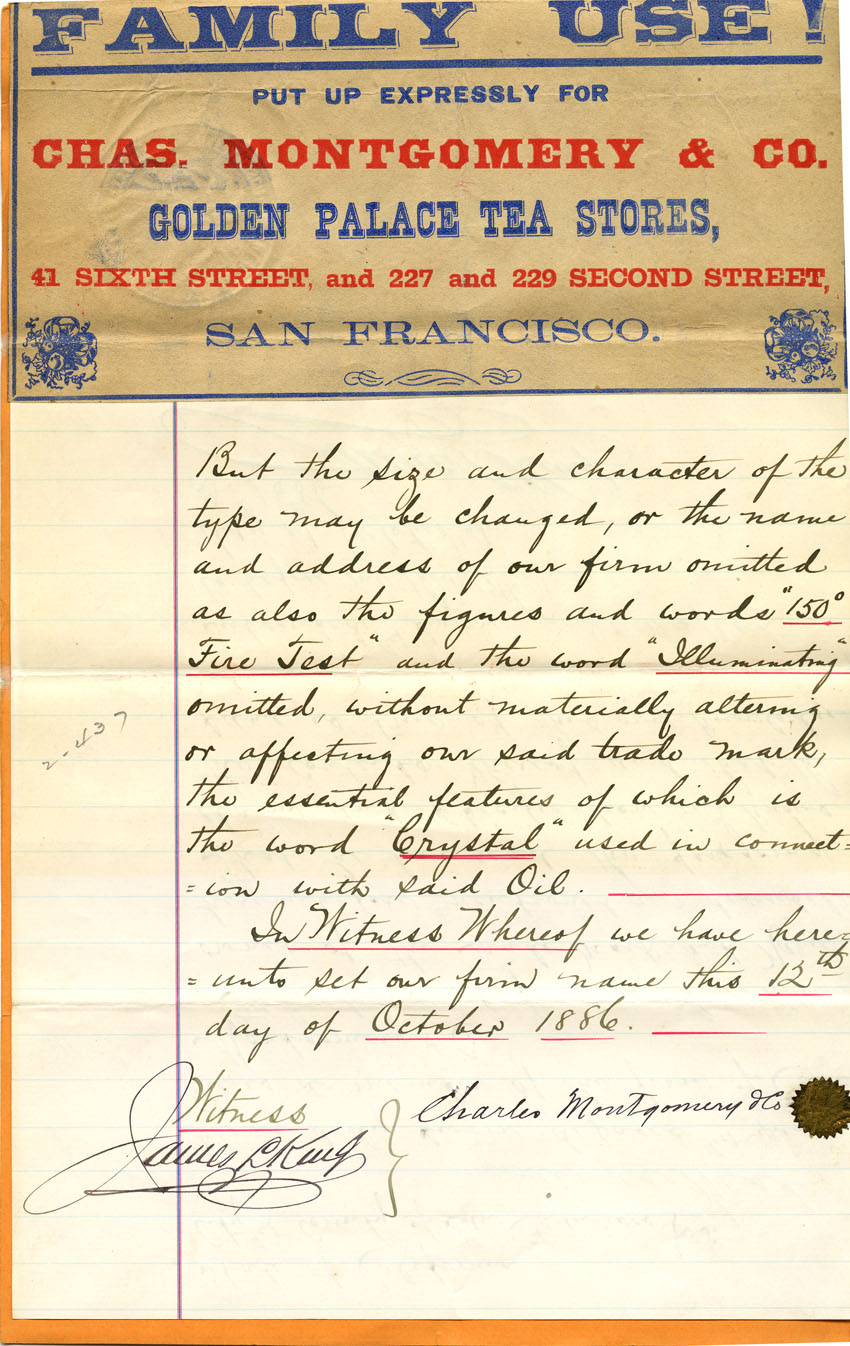 FAMILY USE!
PUT UP EXPRESSLY FOR
CHAS. MONTGOMERY & CO.
GOLDEN PALACE TEA STORES,
41 SIXTH STREET, and 227 and 229 SECOND STREET,
SAN FRANCISCO.
But the size and character of the
type may be changed, or the name
and address of our firm omitted
as also the figures and words "150°
Fire Test" and the word "Illuminating"
omitted, without materially altering
2-437
or affecting our said trade mark,
the essential features of which is
the word "Crystal" used in connect=
=ion with said Oil.
In Witness Whereof we have here=
=unto set our firm name this 12th
day of October 1886.
Witness
Charles Montgomery & Co
James L King